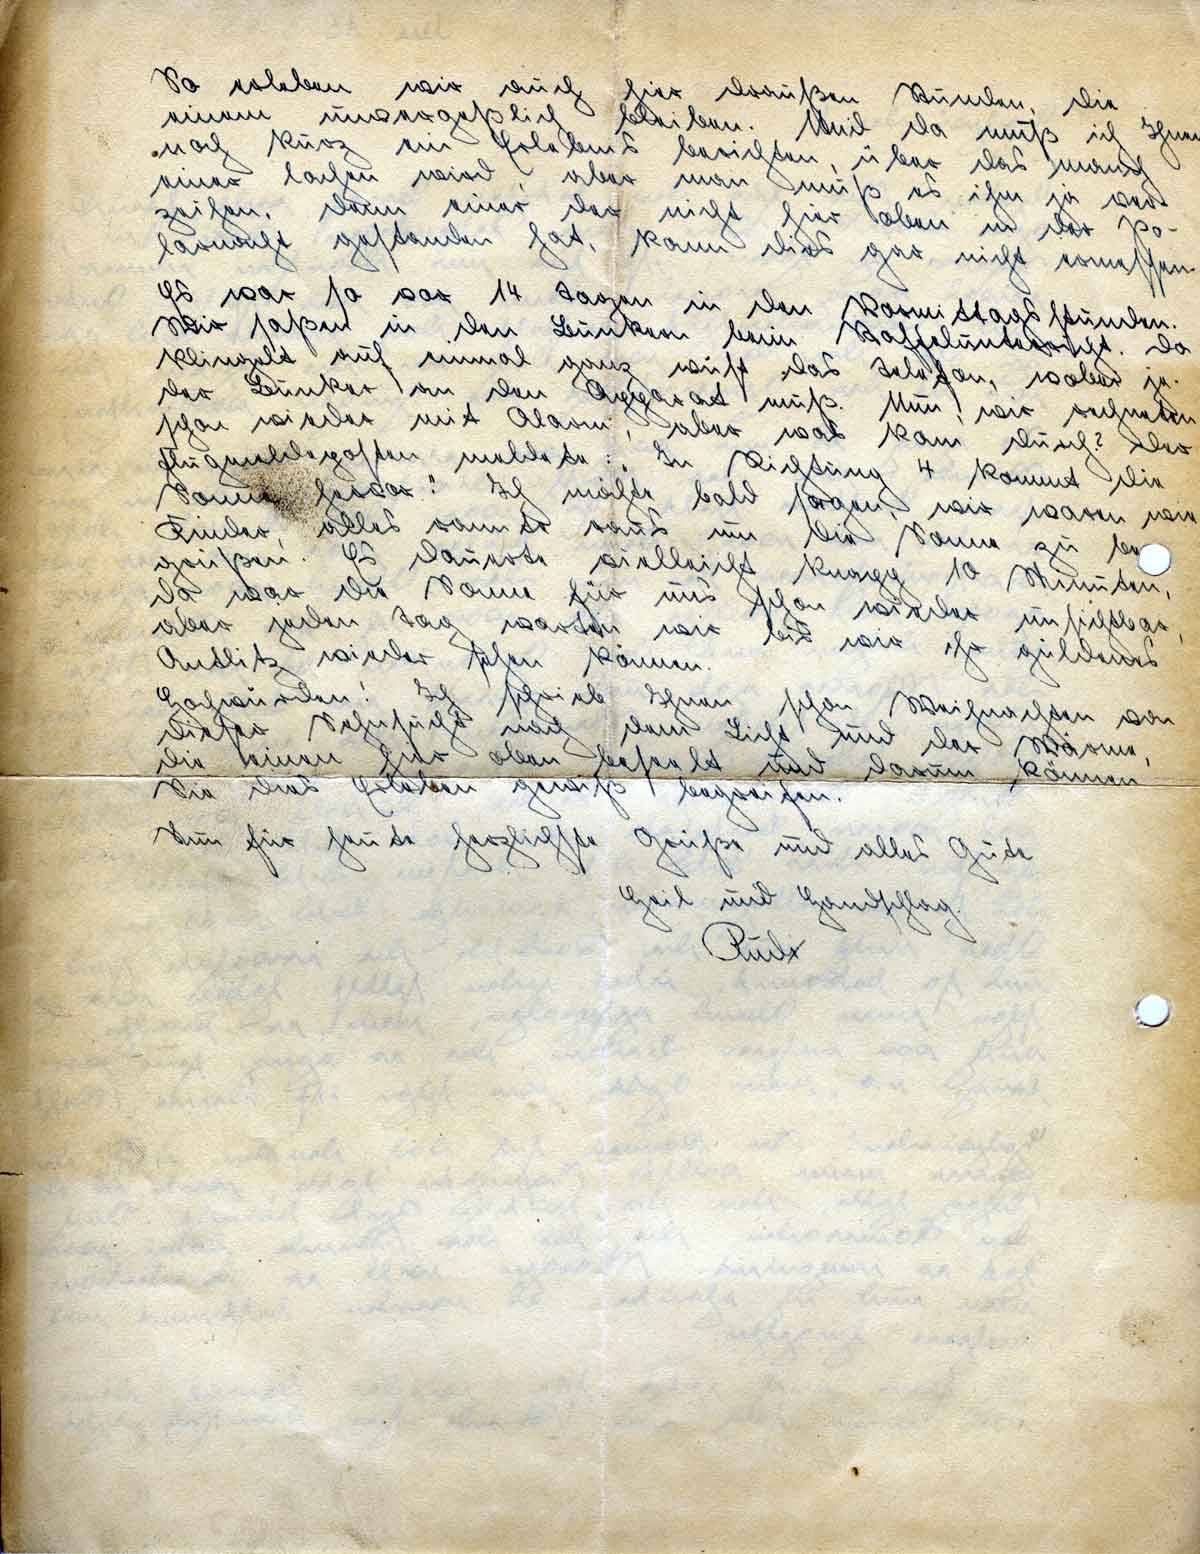 So erleben wir auch hier draußen Stunden, die
einem unvergeßlich bleiben. Und da muß ich Ihnen
noch kurz ein Erlebnis berichten, über das manch
einer lachen wird, aber man muß es ihm ja ver
zeihen, denn einer der nicht hier oben in der Po-
larnacht gestanden hat, kann dies gar nicht ermessen.
Es war so vor 14 Tagen in den Vormittagsstunden.
Wir saßen in den Bunkern beim Staffelunterricht. Da
klingelt auf einmal ganz wüst das Telefon, wobei je-
der Bunker an den Apparat muß. Nun, wir rechneten
schon wieder mit Alarm, aber was kam durch? Der
Flugmeldeposten meldete: "In Richtung 4 kommt die
Sonne hervor." Ich möchte bald sagen, wir waren wie
Kinder, alles rannte raus um die Sonne zu be
grüßen. Es dauerte vielleicht knapp 10 Minuten,
da war die Sonne für uns schon wieder unsichtbar,
aber jeden Tag warten wir bis wir ihr güldenes
Antlitz wieder sehen können.
Hochwürden! Ich schrieb Ihnen schon Weihnachten von
dieser Sehnsucht nach dem Licht und der Wärme,
die einen hier oben beseelt und darum können
Sie dies Erleben gewiß begreifen.
Nun für heute herzlichste Grüße und alles Gute
Heil und Handschlag.
Rudi